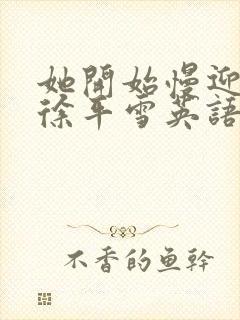 她開始慢迎
徐平雪英語
不香的鱼幹